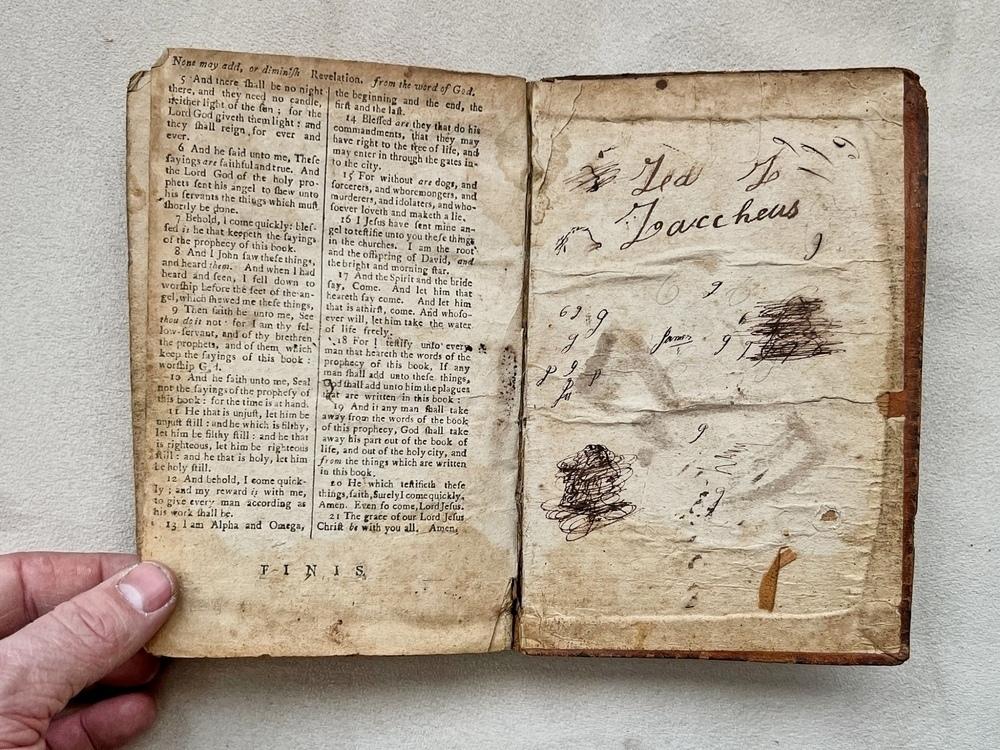 None may add, or diminiſh Revelation. from the word of God.
5 And there ſhall be no night
there, and they need no candle,
neither light of the ſun; for the
Lord God giveth them light: and
they ſhall reign for ever and
ever.
6 And he ſaid unto me, Theſe
ſayings are faithful and true. And
the Lord God of the holy pro-
phets ſent his angel to ſhew unto
his ſervants the things which muſt
ſhortly be done.
7 Behold, I come quickly: bleſ-
ſed is he that keepeth the ſayings
of the prophecy of this book.
8 And I John ſaw theſe things,
and heard them. And when I had
heard and ſeen, I fell down to
worſhip before the feet of the an-
gel, which ſhewed me theſe things,
9 Then ſaith he unto me, See
thou do it not: for I am thy fel-
low-ſervant, and of thy brethren
the prophets, and of them which
keep the ſayings of this book:
worſhip
10 And he ſaith unto me, Seal
not the ſayings of the propheſy of
this book: for the time is at hand.
11 He that is unjuſt, let him be
unjuſt ſtill: and he which is filthy,
let him be filthy ſtill: and he that
is righteous, let him be righteous
ſtill: and he that is holy, let him
be holy ſtill.
12 And behold, I come quick-
ly; and my reward is with me,
to give every man according as
his work ſhall be.
13 I am Alpha and Omega,
the beginning and the end, the
firſt and the laſt.
14 Bleſſed are they that do his
commandments, that they may
have right to the tree of life, and
may enter in through the gates in-
to the city.
15 For without are dogs, and
ſorcerers, and whoremongers, and
murderers, and idolaters, and who-
ſoever loveth and maketh a lie.
16 I Jeſus have ſent mine an-
gel to teſtifie unto you theſe things
in the churches. I am the root
and the offspring of David, and
the bright and morning ſtar.
17 And the Spirit and the bride
ſay, Come. And let him that
heareth ſay come. And let him
that is athirſt, come. And whoſo-
ever will, let him take the water
of life freely.
18 For I teſtify unto every
man that heareth the words of the
prophecy of this book, If any
man ſhall add unto theſe things,
God ſhall add unto him the plagues
that are written in this book:
19 And if any man ſhall take
away from the words of the book
of this prophecy, God ſhall take
away his part out of the book of
life, and out of the holy city, and
from the things which are written
in this book.
20 He which teſtifieth theſe
things, ſaith, Surely I come quickly,
Amen. Even ſo come, Lord Jeſus.
21 The grace of our Lord Jeſus
Chriſt be with you all. Amen.
FINIS.
Zaccheus
9
9
James 9
9
9